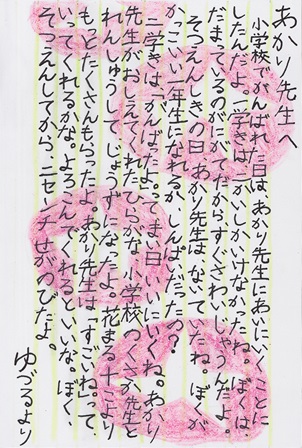 あかり先生へ
小学校でがんばれた日は、あかり先生にあいにいくことに
したんだよ。一学きは、二かいしかいけなかったね。ぼくは、
だまっているのがにがてだからすぐさわいじゃうんだよ。
そつえんしきの日、あかり先生はないていたね。ぼくが
かっこいい一年生になれるか、しんぱいだったの？
二学きは「がんばったよ。」ってまい日いいにいくね。あかり
先生がおしえてくれたひらがな、小学校のつくさか先生と
れんしゅうして、じょうずになったよ。花まる十こより
もっとたくさんもらったよ。あかり先生は「すごいね。」って、
いってくれるかな。よろこんでくれるといいな。ぼく、
そつえんしてから、二センチせがのびたよ。
ゆづるより